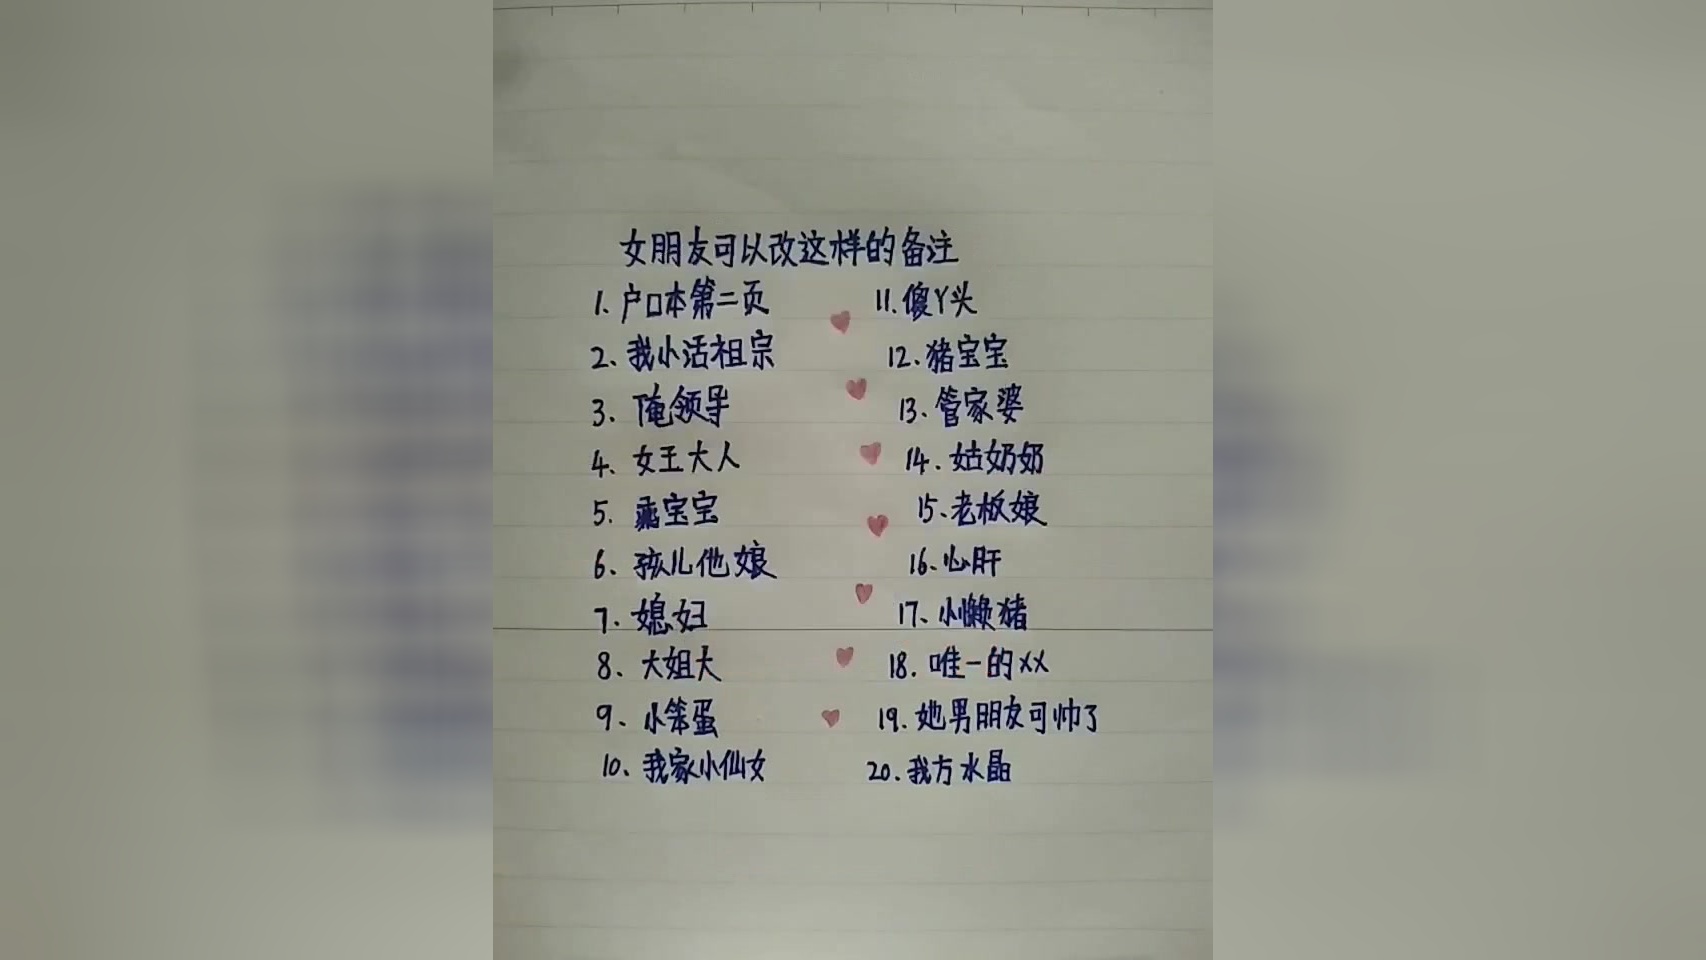 女朋友可以改这样的备注
1. 户口本第二页
2、我小活祖宗
3、俺领导
4、女王大人
5. 乖宝宝
6、孩儿他娘
7. 媳妇
8、大姐大
9、小笨蛋
10、我家小仙女
11. 傻丫头
12. 猪宝宝
13、管家婆
14. 姑奶奶
15、老板娘
16、心肝
17、小懒猪
18. 唯一的××
19. 她男朋友可帅了
20. 我方水晶